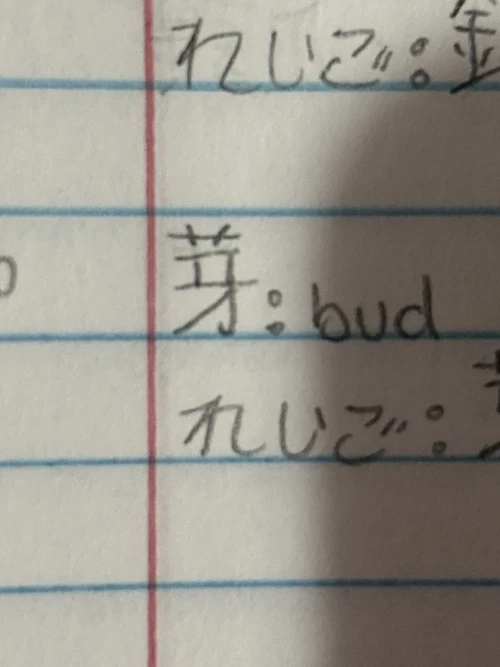 れいご:金
芽:bud
れいご: